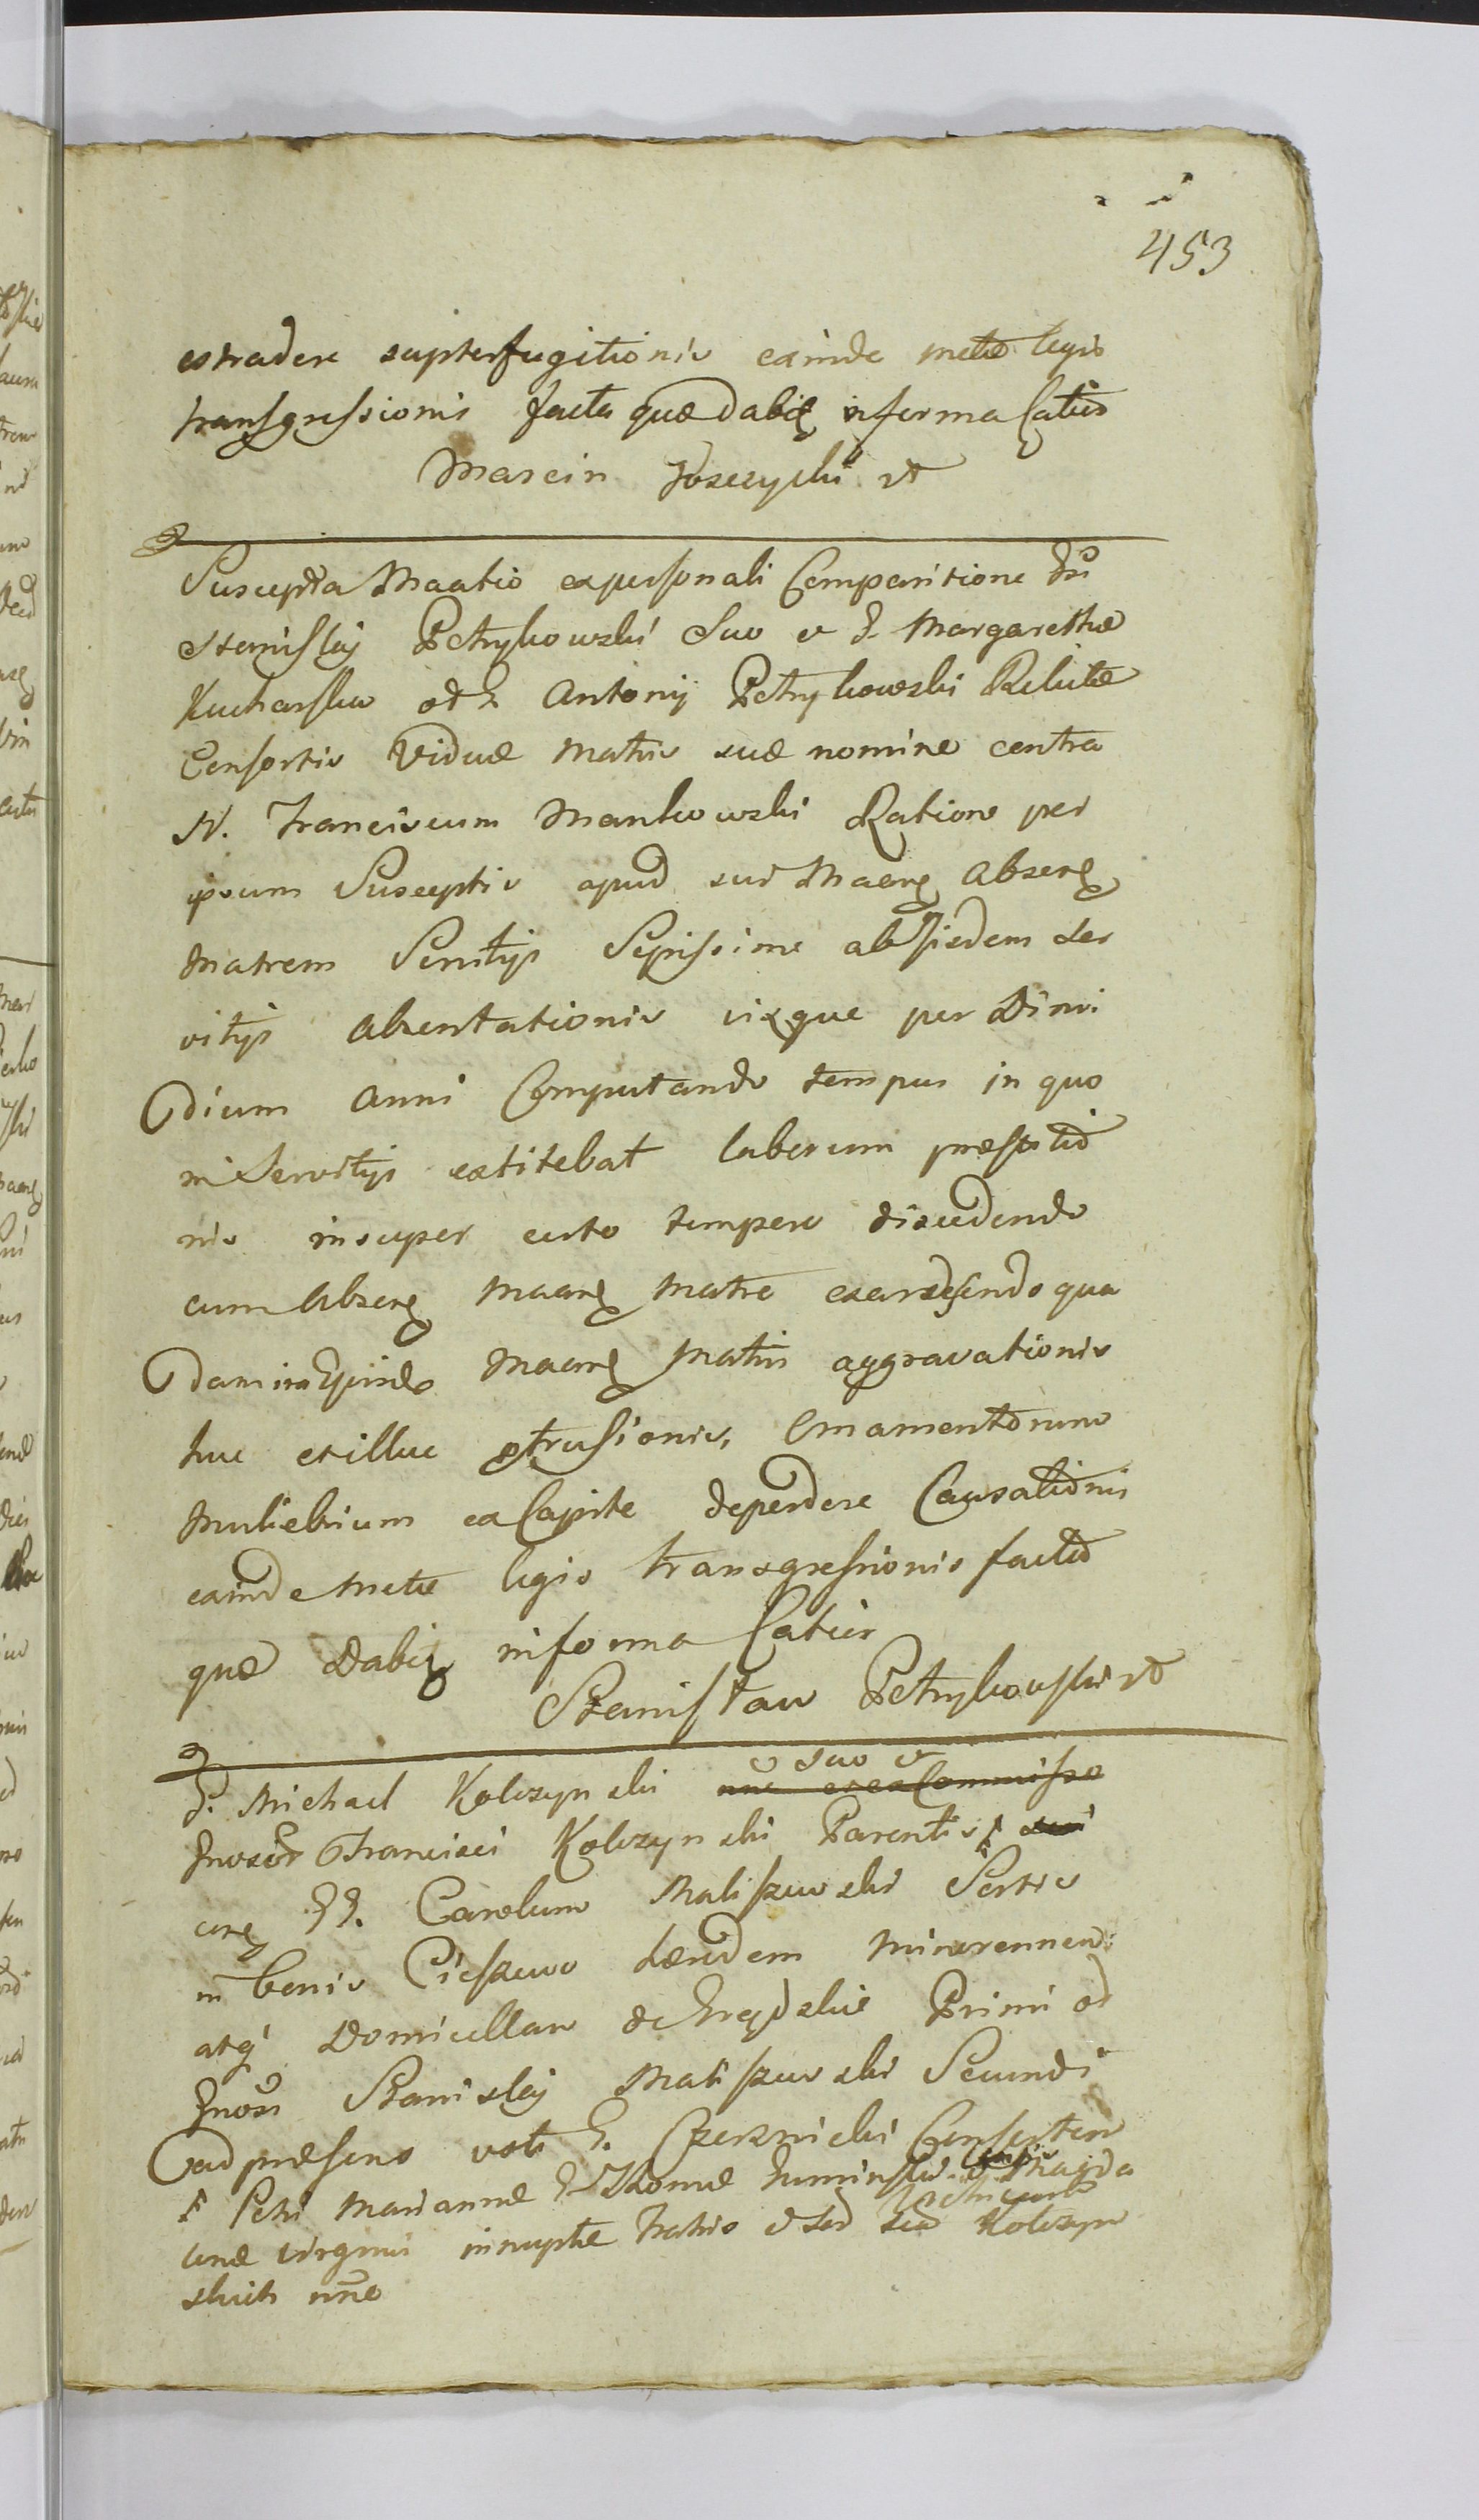 453
extradere supterfugitionis exinde metæ legis
transgressionis facta quæ dabit in forma Latius
Marcin
Suscepta Maatio ex personali Comparitione
Stanislaj Petrykowski Suo et Margarethæ
Kucharska olim Antonij Petrykowski Relictæ
Consortis Viduæ Matris suæ nomine contra
N. Franciscum Mankowski Ratione per
ipsum Susceptis apud sui Maare Absere
Matrem Servitijs Sepissime ab Ijsdem ser
vitijs absentationis vixque per Dimi
dium anni Computando tempus in quo
in Servitijs extitebat laborum præstatio
nis insuper certo tempore discedendo
cum Absere Maare Matre exardescendo qua
dam Maare Matris aggravationis
huc et illuc protrusionis, Ornamentorum
Muliebrium ex Capite deperdere Causationis
exinde Metæ legis transgressionis factæ
quæ Dabit in forma Latius
Stanisław Petrykowski
G. Michael Kolczynski suo et
Francisci Kolczynski Parentis
GG. Carolum Maliszewski Sortis
in bonis Cieszewo Hæredem
atq Domicellam de Primi ac
Gnosi Stanislaj Maliszewski Secundi
ad præsens voti G. Czerznicki Consortem
Petri Mariannæ Thomæ
Virginis innuptæ Fratris et Kolczyn
skich nne